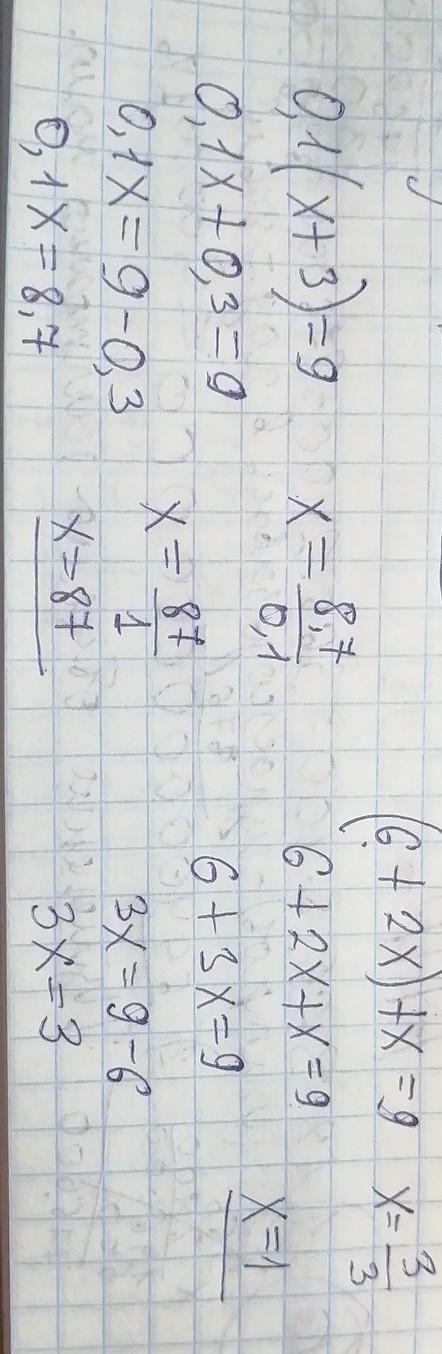 0,1(x+3)=9
0,1x+0,3=9
0,1x=9-0,3
0,1x=8,7
x=8,7/0,1
x=87/1
x=87
(6+2x)+x=9
6+2x+x=9
6+3x=9
3x=9-6
3x=3
x=3/3
x=1